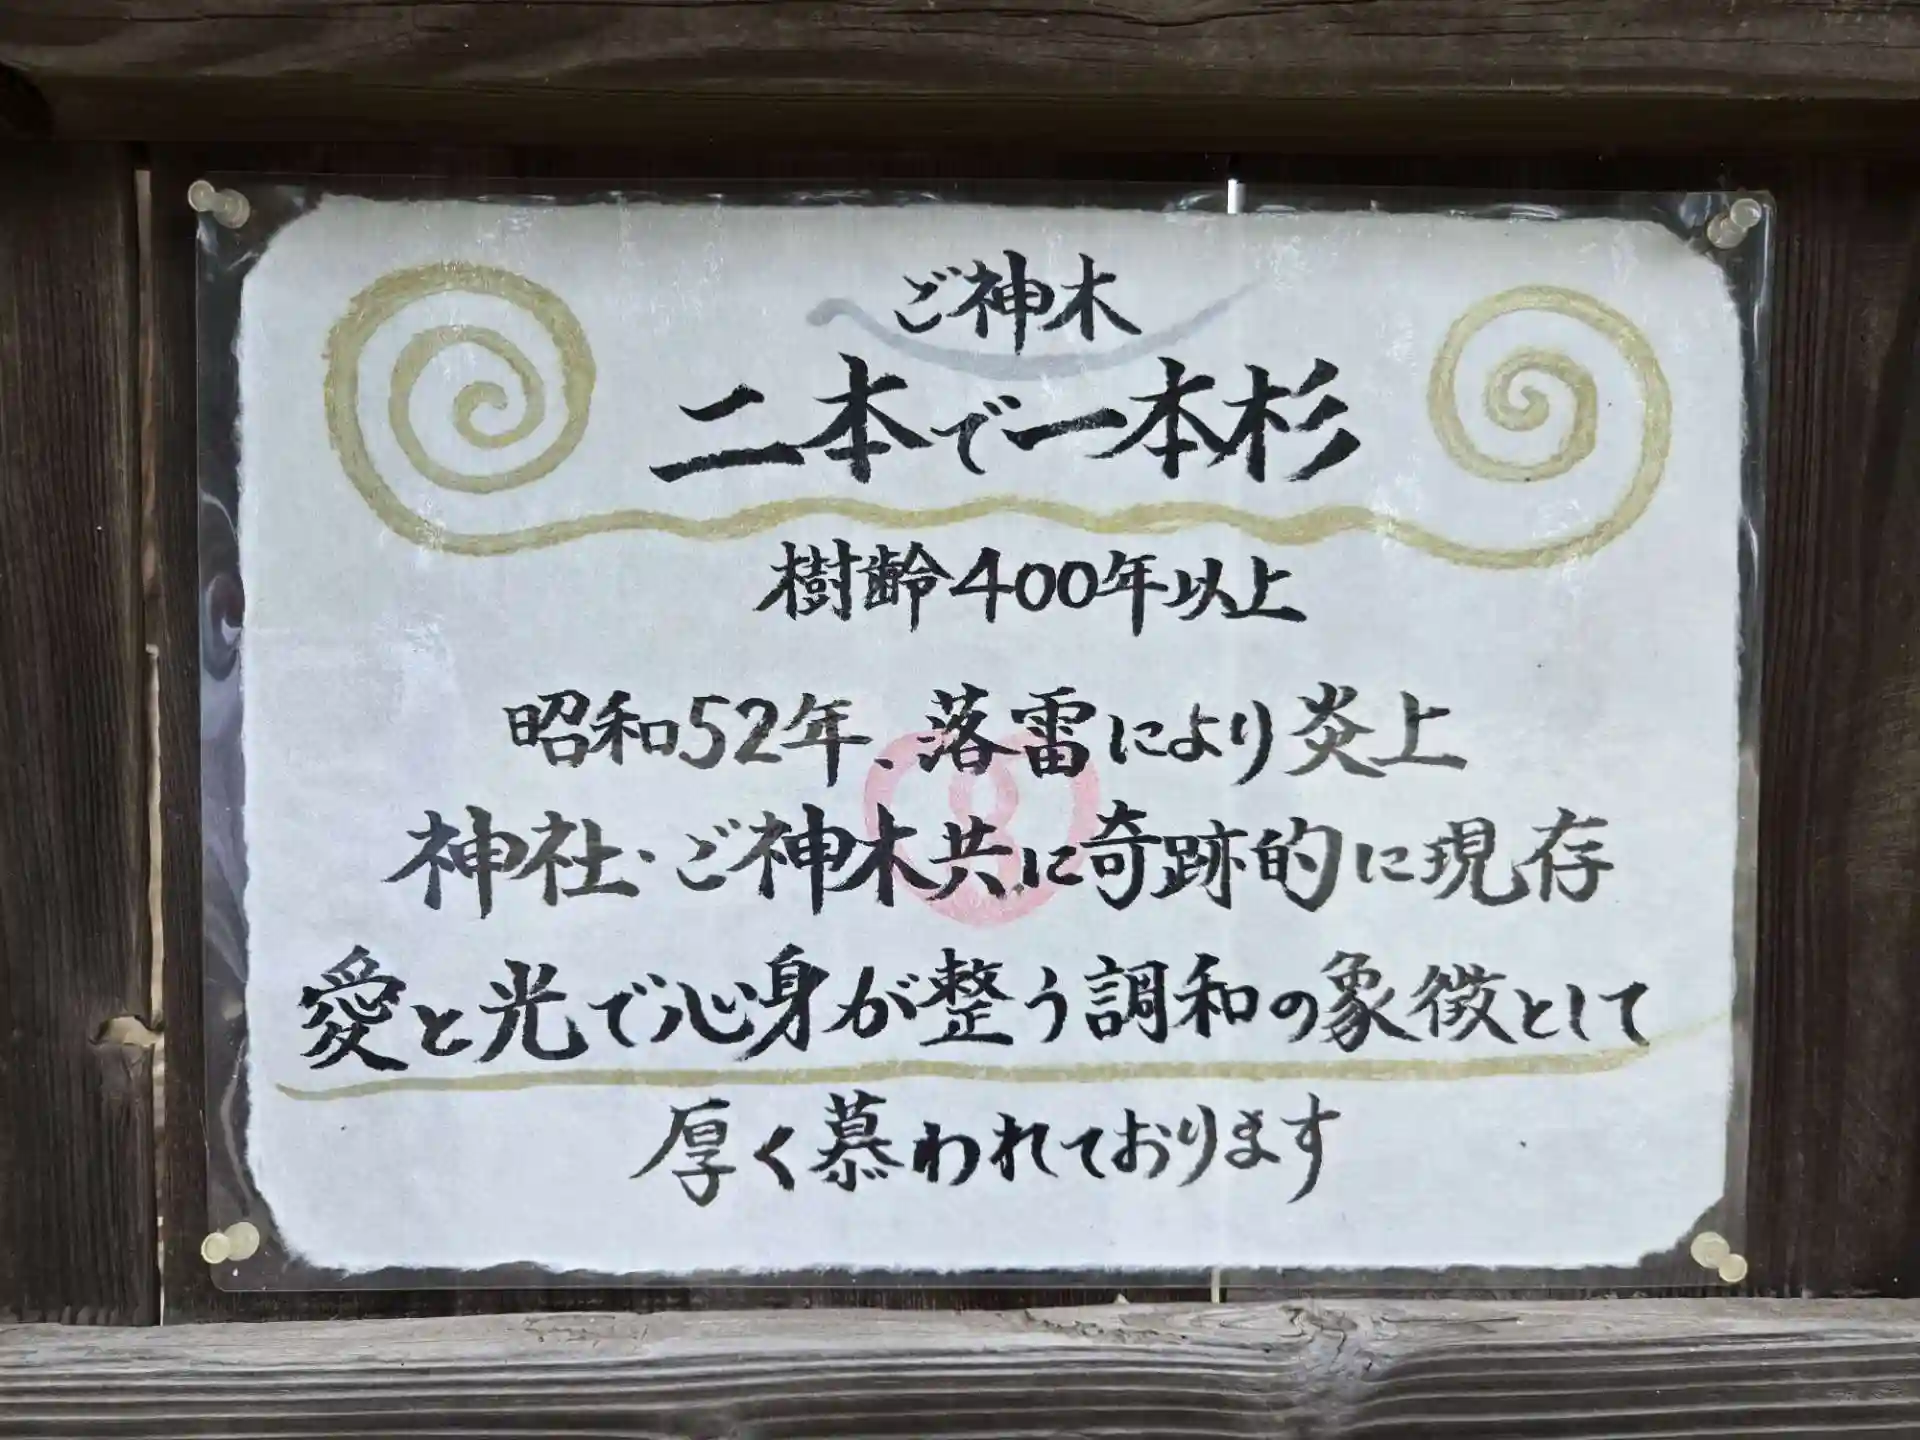 ご神木
二本で一本杉
樹齢400年以上
昭和52年、落雷により炎上
神社・ご神木共に奇跡的に現存
愛と光で心身が整う調和の象徴として
厚く慕われております